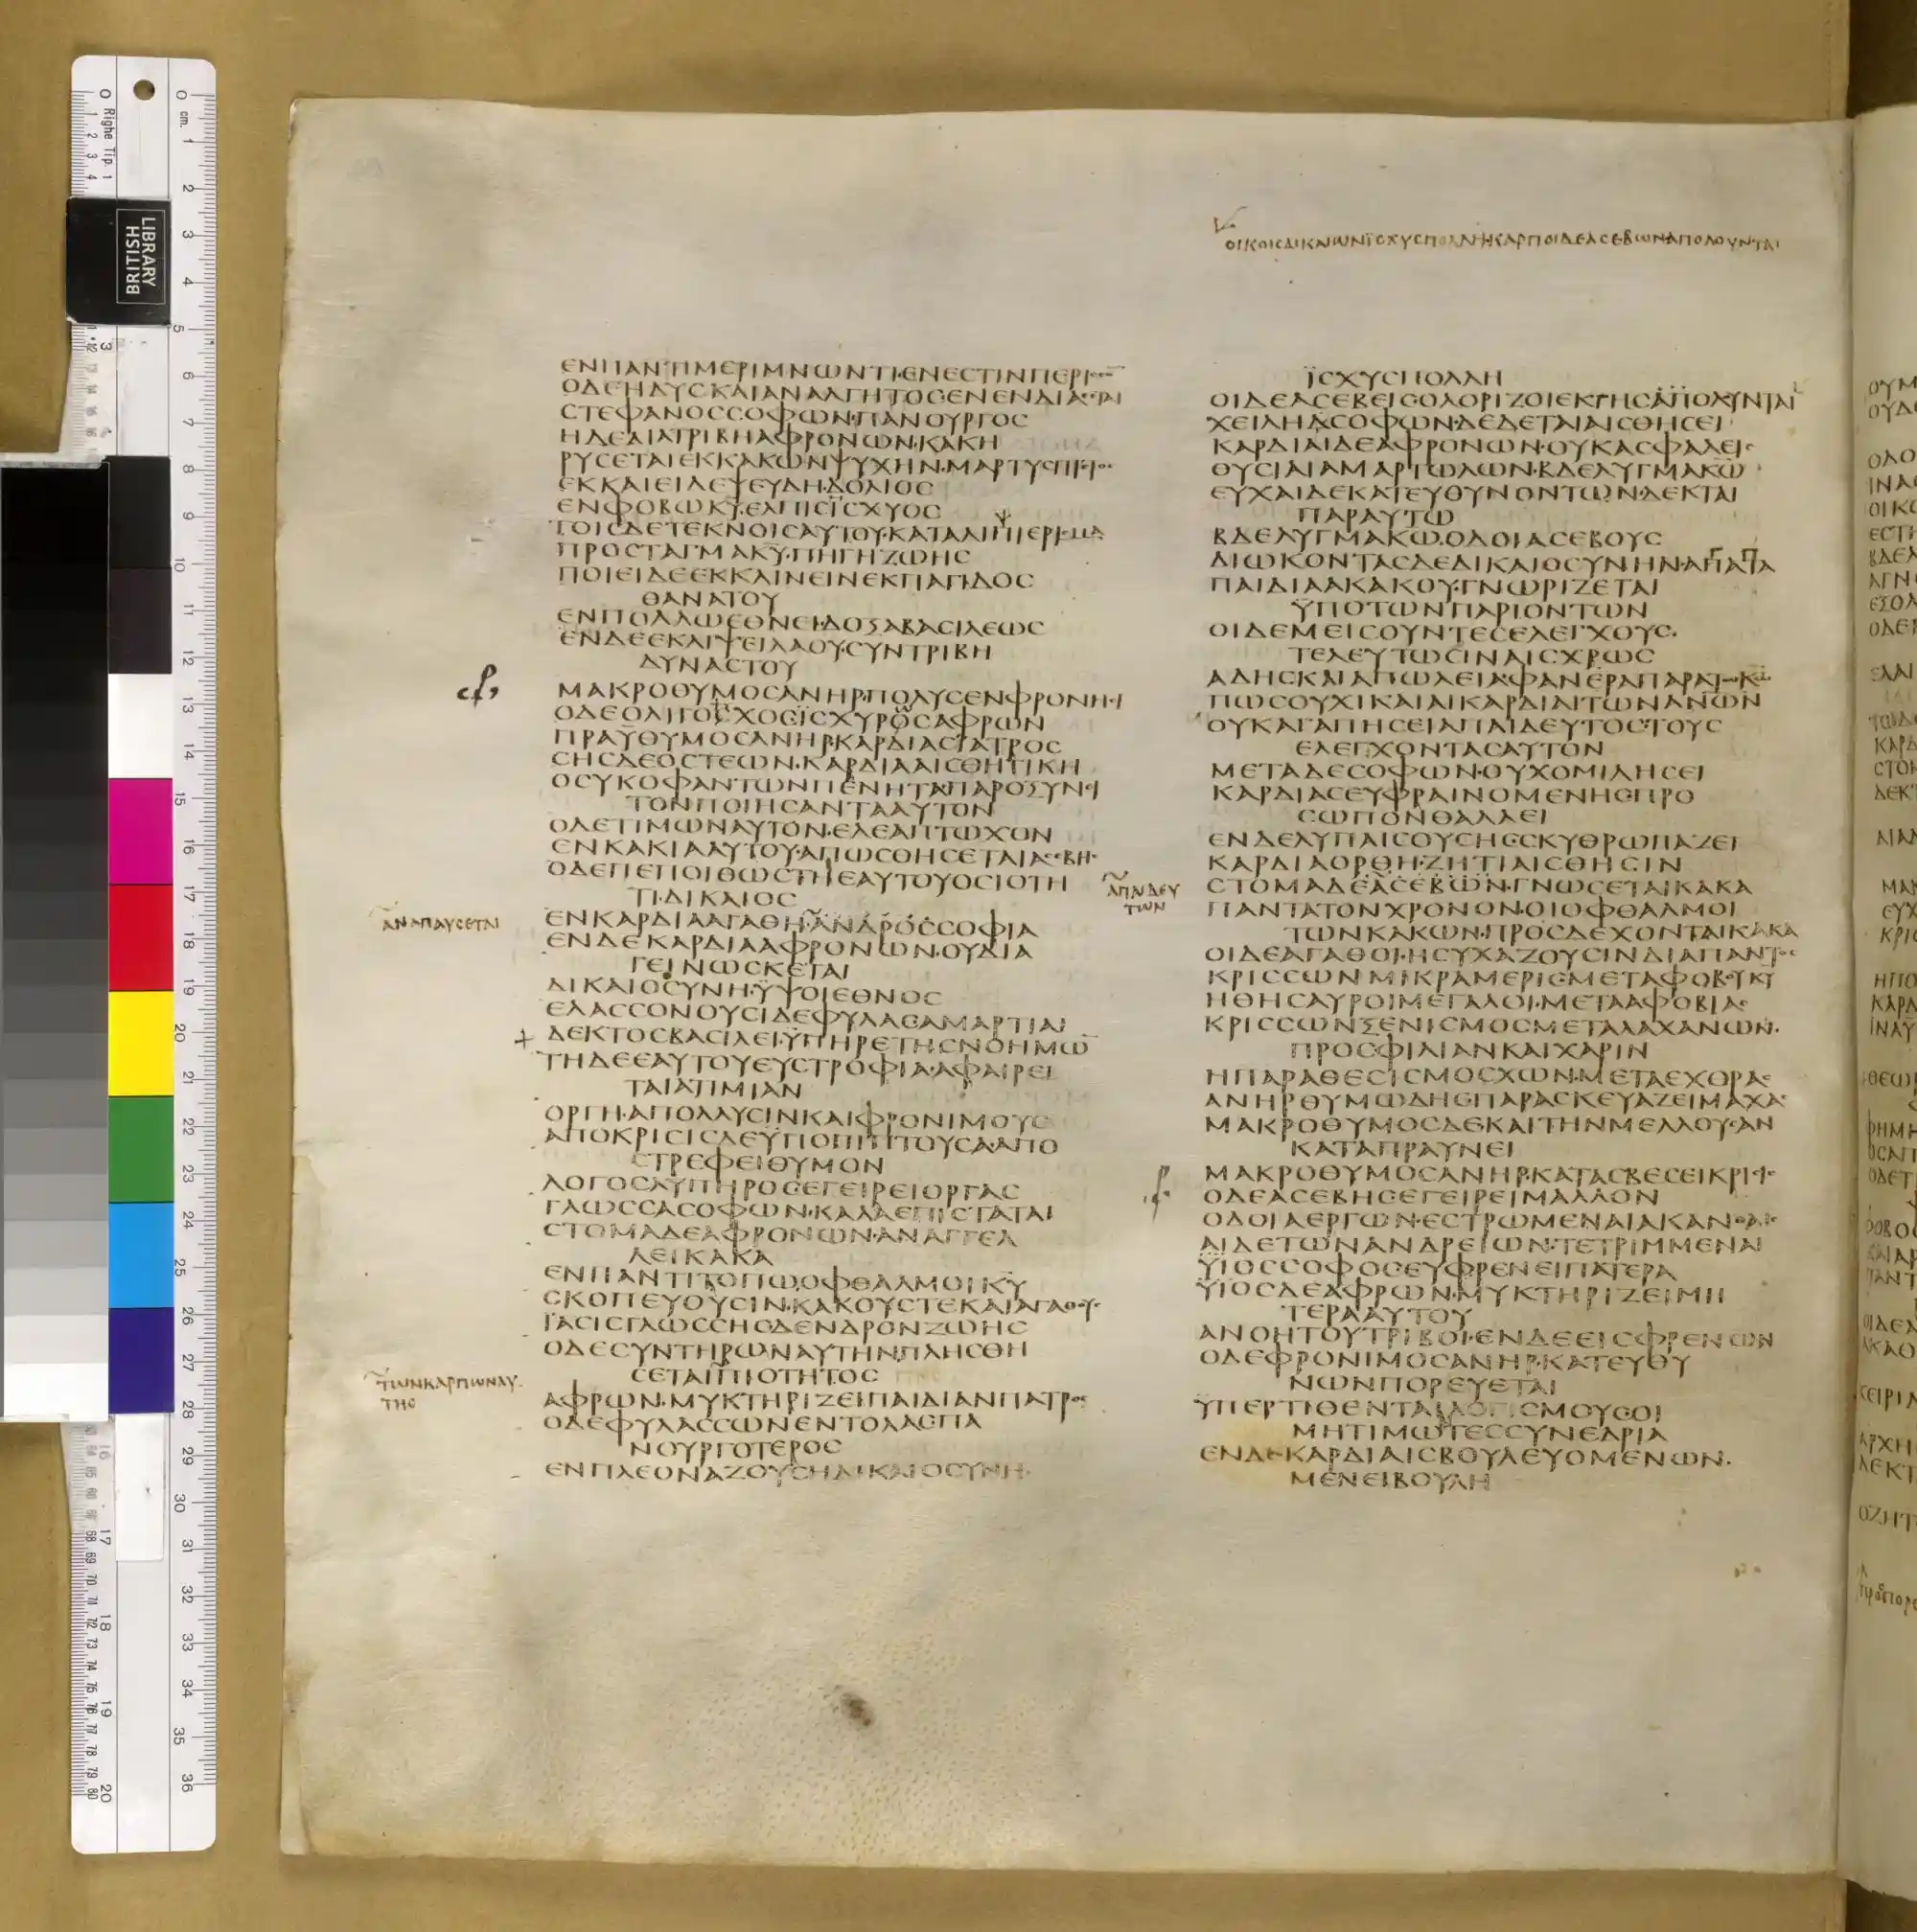 οικοιcδικαιωνϊcχυcπολληκαρποιδεαcεβωναπολουνται
ΕΝΠΑΝΤΙΜΕΡΙΜΝΩΝΤΙ·ΕΝΕCΤΙΝΠΕΡΙ
CΤΕΦΑΝΟCCΟΦΩΝ·ΠΑΝΟΥΡΓΟC
ΗΔΕΔΙΑΤΡΙΒΗΑΦΡΟΝΩΝ·ΚΑΚΗ
ΡΥCΕΤΑΙΕΚΚΑΚΩΝΨΥΧΗΝ·ΜΑΡΤΥCΠΙC
ΕΚΚΑΙΕΙΔΕΨΕΥΔΗ·ΔΟΛΙΟC
ΕΝΦΟΒΩΚΥ·ΕΛΠΙCΪCΧΥΟC
ΤΟΙCΔΕΤΕΚΝΟΙCΑΥΤΟΥ·ΚΑΤΑΛΙΠΙΕΡΙCΜΑ
ΠΡΟCΤΑΓΜΑΚΥ·ΠΗΓΗΖΩΗC
ΠΟΙΕΙΔΕΕΚΚΛΙΝΕΙΝΕΚΠΑΓΙΔΟC
ΘΑΝΑΤΟΥ
ΕΝΠΟΛΛΩΕΘΝΕΙ·ΔΟΞΑΒΑCΙΛΕΩC
ΕΝΔΕΕΚΛΙΨΕΙΛΑΟΥ·CΥΝΤΡΙΒΗ
ΔΥΝΑCΤΟΥ
ΜΑΚΡΟΘΥΜΟCΑΝΗΡ·ΠΟΛΥCΕΝΦΡΟΝΗCΙ
ΟΔΕΟΛΙΓΟΨΧΟCΪCΧΥΡΩCΑΦΡΩΝ
ΠΡΑΫΘΥΜΟCΑΝΗΡ·ΚΑΡΔΙΑCΪΑΤΡΟC
CΗCΔΕΟCΤΕΩΝ·ΚΑΡΔΙΑΑΙCΘΗΤΙΚΗ
ΟCΥΚΟΦΑΝΤΩΝΠΕΝΗΤΑΠΑΡΟΞΥΝΕΙ
ΤΟΝΠΟΙΗCΑΝΤΑΑΥΤΟΝ
ΟΔΕΤΙΜΩΝΑΥΤΟΝ·ΕΛΕΑΠΤΩΧΟΝ
ΕΝΚΑΚΙΑΑΥΤΟΥ·ΑΠΩCΘΗCΕΤΑΙΑCΕΒΗC
ΟΔΕΠΕΠΟΙΘΩCΤΗΕΑΥΤΟΥΟCΙΟΤΗ
ΤΙ·ΔΙΚΑΙΟC
ΕΝΚΑΡΔΙΑΑΓΑΘΗ·ΑΝΔΡΟCCΟΦΙΑ
αναπαυcεται
ΕΝΔΕΚΑΡΔΙΑΑΦΡΟΝΩΝ·ΟΥΔΙΑ
ΓΕΙΝΩCΚΕΤΑΙ
ΔΙΚΑΙΟCΥΝΗ·ΫΨΟΙΕΘΝΟC
ΕΛΑCCΟΝΟΥCΙΔΕΦΥΛΑCΑΜΑΡΤΙΑΙ
ΔΕΚΤΟCΒΑCΙΛΕΙ·ΫΠΗΡΕΤΗCΝΟΗΜΩ
ΤΗΔΕΕΑΥΤΟΥΕΥCΤΡΟΦΙΑ·ΑΦΑΙΡΕΙ
ΤΑΙΑΤΙΜΙΑΝ
ΟΡΓΗ·ΑΠΟΛΛΥCΙΝΚΑΙΦΡΟΝΙΜΟΥC
ΑΠΟΚΡΙCΙCΔΕΫΠΟΠΙΠΤΟΥCΑ·ΑΠΟ
CΤΡΕΦΕΙΘΥΜΟΝ
ΛΟΓΟCΛΥΠΗΡΟCΕΓΕΙΡΕΙΟΡΓΑC
ΓΛΩCCΑCΟΦΩΝ·ΚΑΛΑΕΠΙCΤΑΤΑΙ
CΤΟΜΑΔΕΑΦΡΟΝΩΝ·ΑΝΑΓΓΕΛ
ΛΕΙΚΑΚΑ
ΕΝΠΑΝΤΙΤΟΠΩ·ΟΦΘΑΛΜΟΙΚΥ
CΚΟΠΕΥΟΥCΙΝ·ΚΑΚΟΥCΤΕΚΑΙΑΓΑΘΟΥC
ΪΑCΙCΓΛΩCCΗCΔΕΝΔΡΟΝΖΩΗC
ΟΔΕCΥΝΤΗΡΩΝΑΥΤΗΝ·ΠΛΗCΘΗ
CΕΤΑΙΠΙΟΤΗΤΟC
τωνκαρπωναυ
τηc
ΑΦΡΩΝ·ΜΥΚΤΗΡΙΖΕΙΠΑΙΔΙΑΝΠΑΤΡΟC
ΟΔΕΦΥΛΑCCΩΝΕΝΤΟΛΑCΠΑ
ΝΟΥΡΓΟΤΕΡΟC
ΕΝΠΛΕΟΝΑΖΟΥCΗΔΙΚΑΙΟCΥΝΗ·
ΪCΧΥCΠΟΛΛΗ
ΟΙΔΕΑCΕΒΕΙCΟΛΟΡΙΖΟΙΕΚΓΗCΑΠΟΛΥΝΤΑΙ
ΧΕΙΛΗΔCΟΦΩΝ·ΔΕΔΕΤΑΙΑΙCΘΗCΕΙ
ΚΑΡΔΙΑΙΔΕΑΦΡΟΝΩΝ·ΟΥΚΑCΦΑΛΕΙC
ΘΥCΙΑΙΑΜΑΡΤΩΛΩΝ·ΒΔΕΛΥΓΜΑΚΩ
ΕΥΧΑΙΔΕΚΑΤΕΥΘΥΝΟΝΤΩΝ·ΔΕΚΤΑΙ
ΠΑΡΑΥΤΩ
ΒΔΕΛΥΓΜΑΚΩ·ΟΔΟΙΑCΕΒΟΥC
ΔΙΩΚΟΝΤΑCΔΕΔΙΚΑΙΟCΥΝΗΝ·ΑΓΑΠΑ
ΠΑΙΔΙΑΑΚΑΚΟΥ·ΓΝΩΡΙΖΕΤΑΙ
ΫΠΟΤΩΝΠΑΡΙΟΝΤΩΝ
ΟΙΔΕΜΕΙCΟΥΝΤΕCΕΛΕΓΧΟΥC·
ΤΕΛΕΥΤΩCΙΝΑΙCΧΡΩC
ΑΔΗCΚΑΙΑΠΩΛΕΙΑ·ΦΑΝΕΡΑΠΑΡΑΤΩΚΩ
ΠΩCΟΥΧΙΚΑΙΑΙΚΑΡΔΙΑΙΤΩΝΑΝΩΝ
ΟΥΚΑΓΑΠΗCΕΙΑΠΑΙΔΕΥΤΟC·ΤΟΥC
ΕΛΕΓΧΟΝΤΑCΑΥΤΟΝ
ΜΕΤΑΔΕCΟΦΩΝ·ΟΥΧΟΜΙΛΗCΕΙ
ΚΑΡΔΙΑCΕΥΦΡΑΙΝΟΜΕΝΗCΠΡΟ
CΩΠΟΝΘΑΛΛΕΙ
ΕΝΔΕΛΥΠΑΙCΟΥCΗCCΚΥΘΡΩΠΑΖΕΙ
ΚΑΡΔΙΑΟΡΘΗ·ΖΗΤΙΑΙCΘΗCΙΝ
CΤΟΜΑΔΕΑCΕΒΩΝ·ΓΝΩCΕΤΑΙΚΑΚΑ
απαιδευ
των
ΠΑΝΤΑΤΟΝΧΡΟΝΟΝ·ΟΙΟΦΘΑΛΜΟΙ
ΤΩΝΚΑΚΩΝ·ΠΡΟCΔΕΧΟΝΤΑΙΚΑΚΑ
ΟΙΔΕΑΓΑΘΟΙ·ΗCΥΧΑΖΟΥCΙΝΔΙΑΠΑΝΤΟC
ΚΡΙCCΩΝΜΙΚΡΑΜΕΡΙC·ΜΕΤΑΦΟΒΟΥΚΥ
ΗΘΗCΑΥΡΟΙΜΕΓΑΛΟΙ·ΜΕΤΑΑΦΟΒΙΑC
ΚΡΙCCΩΝΞΕΝΙCΜΟCΜΕΤΑΛΑΧΑΝΩΝ·
ΠΡΟCΦΙΛΙΑΝΚΑΙΧΑΡΙΝ
ΗΠΑΡΑΘΕCΙCΜΟCΧΩΝ·ΜΕΤΑΕΧΘΡΑC
ΑΝΗΡΘΥΜΩΔΗCΠΑΡΑCΚΕΥΑΖΕΙΜΑΧΑC
ΜΑΚΡΟΘΥΜΟCΔΕΚΑΙΤΗΝΜΕΛΛΟΥCΑΝ
ΚΑΤΑΠΡΑΥΝΕΙ
ΜΑΚΡΟΘΥΜΟCΑΝΗΡ·ΚΑΤΑCΒΕCΕΙΚΡΙCΙC
ΟΔΕΑCΕΒΗCΕΓΕΙΡΕΙΜΑΛΛΟΝ
ΟΔΟΙΑΕΡΓΩΝ·ΕCΤΡΩΜΕΝΑΙΑΚΑΝΘΑΙC
ΑΙΔΕΤΩΝΑΝΔΡΕΙΩΝ·ΤΕΤΡΙΜΜΕΝΑΙ
ΫΙΟCCΟΦΟCΕΥΦΡΕΝΕΙΠΑΤΕΡΑ
ΫΙΟCΔΕΑΦΡΩΝ·ΜΥΚΤΗΡΙΖΕΙΜΗ
ΤΕΡΑΑΥΤΟΥ
ΑΝΟΗΤΟΥΤΡΙΒΟΙ·ΕΝΔΕΕΙCΦΡΕΝΩΝ
ΟΔΕΦΡΟΝΙΜΟCΑΝΗΡ·ΚΑΤΕΥΘΥ
ΝΩΝΠΟΡΕΥΕΤΑΙ
ΫΠΕΡΤΙΘΕΝΤΑΙΛΟΓΙCΜΟΥCΟΙ
ΜΗΤΙΜΩΤΕCCΥΝΕΔΡΙΑ
ΕΝΔΕΚΑΡΔΙΑΙCΒΟΥΛΕΥΟΜΕΝΩΝ·
ΜΕΝΕΙΒΟΥΛΗ
BRITISH
LIBRARY
Righe Tip.
cm.